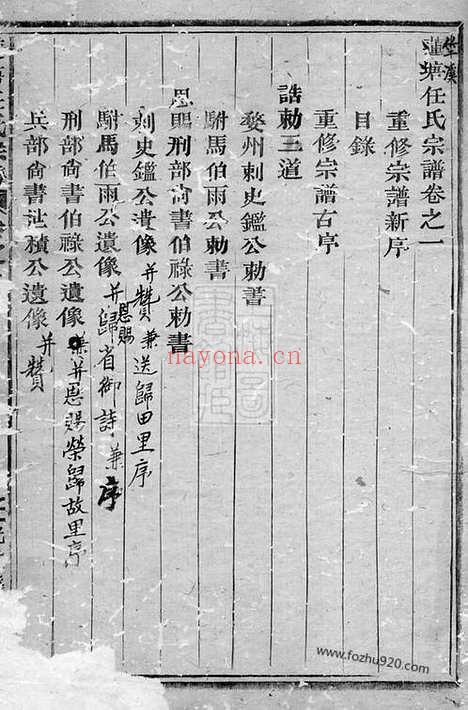 蓮塘任氏宗譜卷之一
重修宗譜新序
目錄
重修宗譜右序
誥勅三道
婺州刺史鑑公勅書
駙馬伯雨公勅書
恩賜刑部尚書伯祿公勅書
刺史鑑公遺像并贊兼送歸田里序
駙馬伯雨公遺像并恩賜歸省御詩兼序
刑部尚書伯祿公遺像兼并恩賜榮歸故里序
兵部尚書沚積公遺像并贊
nayona.cn
www.fozhu920.com